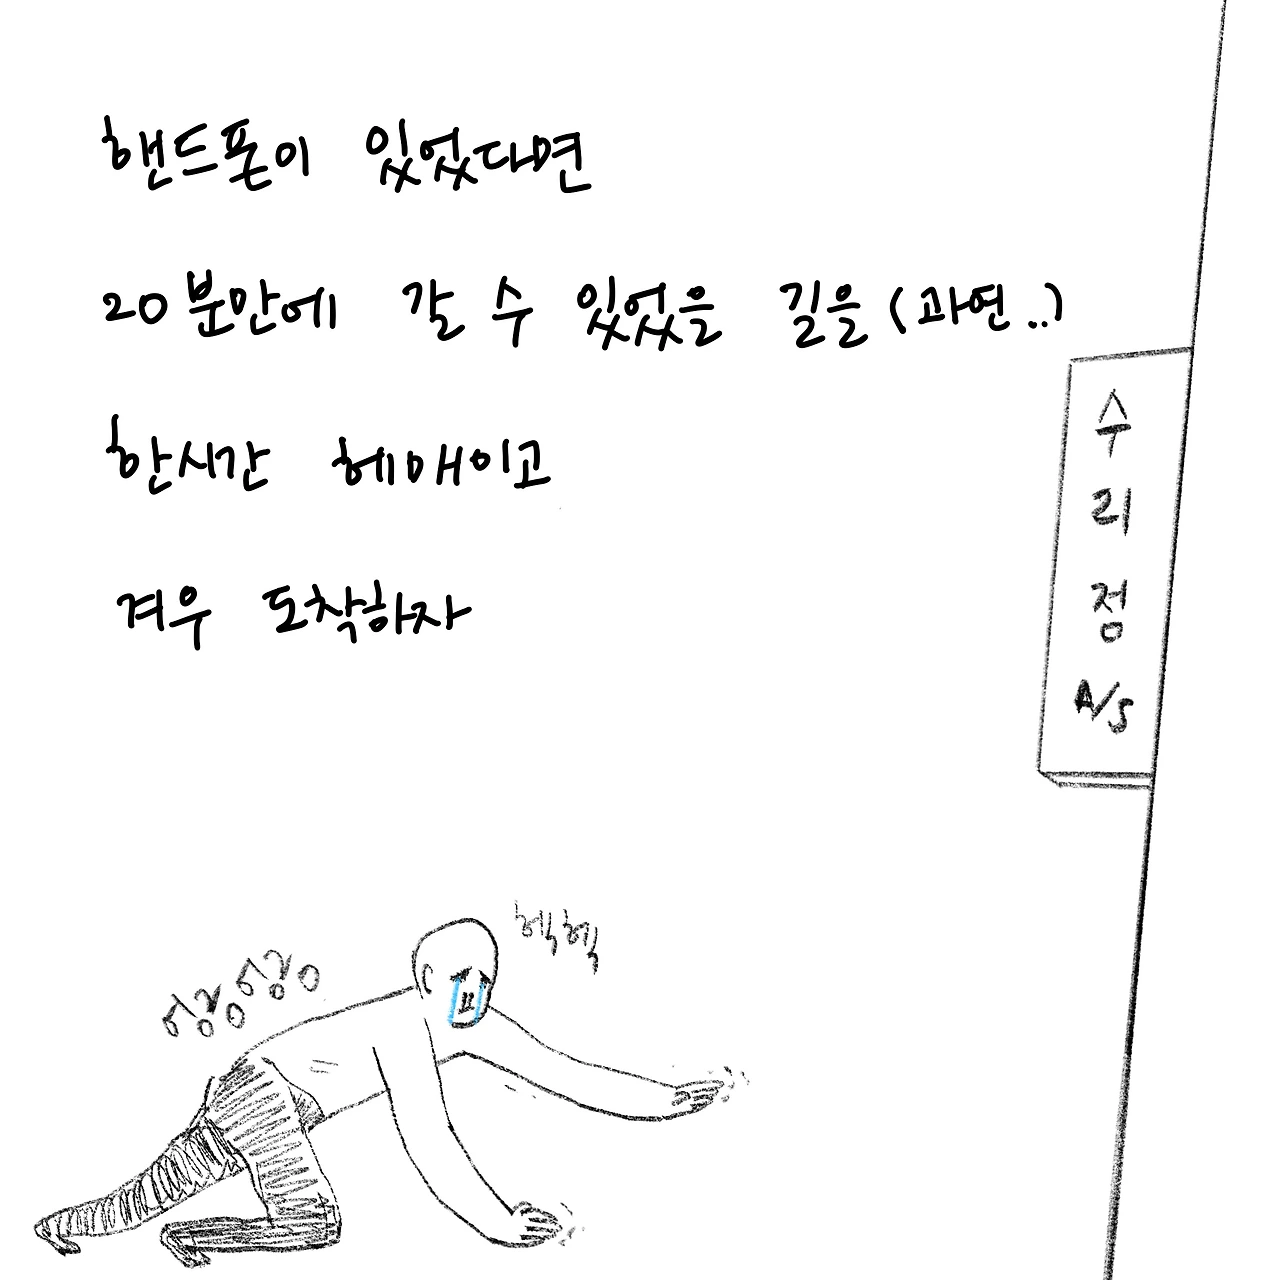 핸드폰이 있었다면
20분만에 갈 수 있었을 길을 (과연..)
한시간 헤매이고
겨우 도착하자
수
리
점
A/S
헥헥
엉금엉금